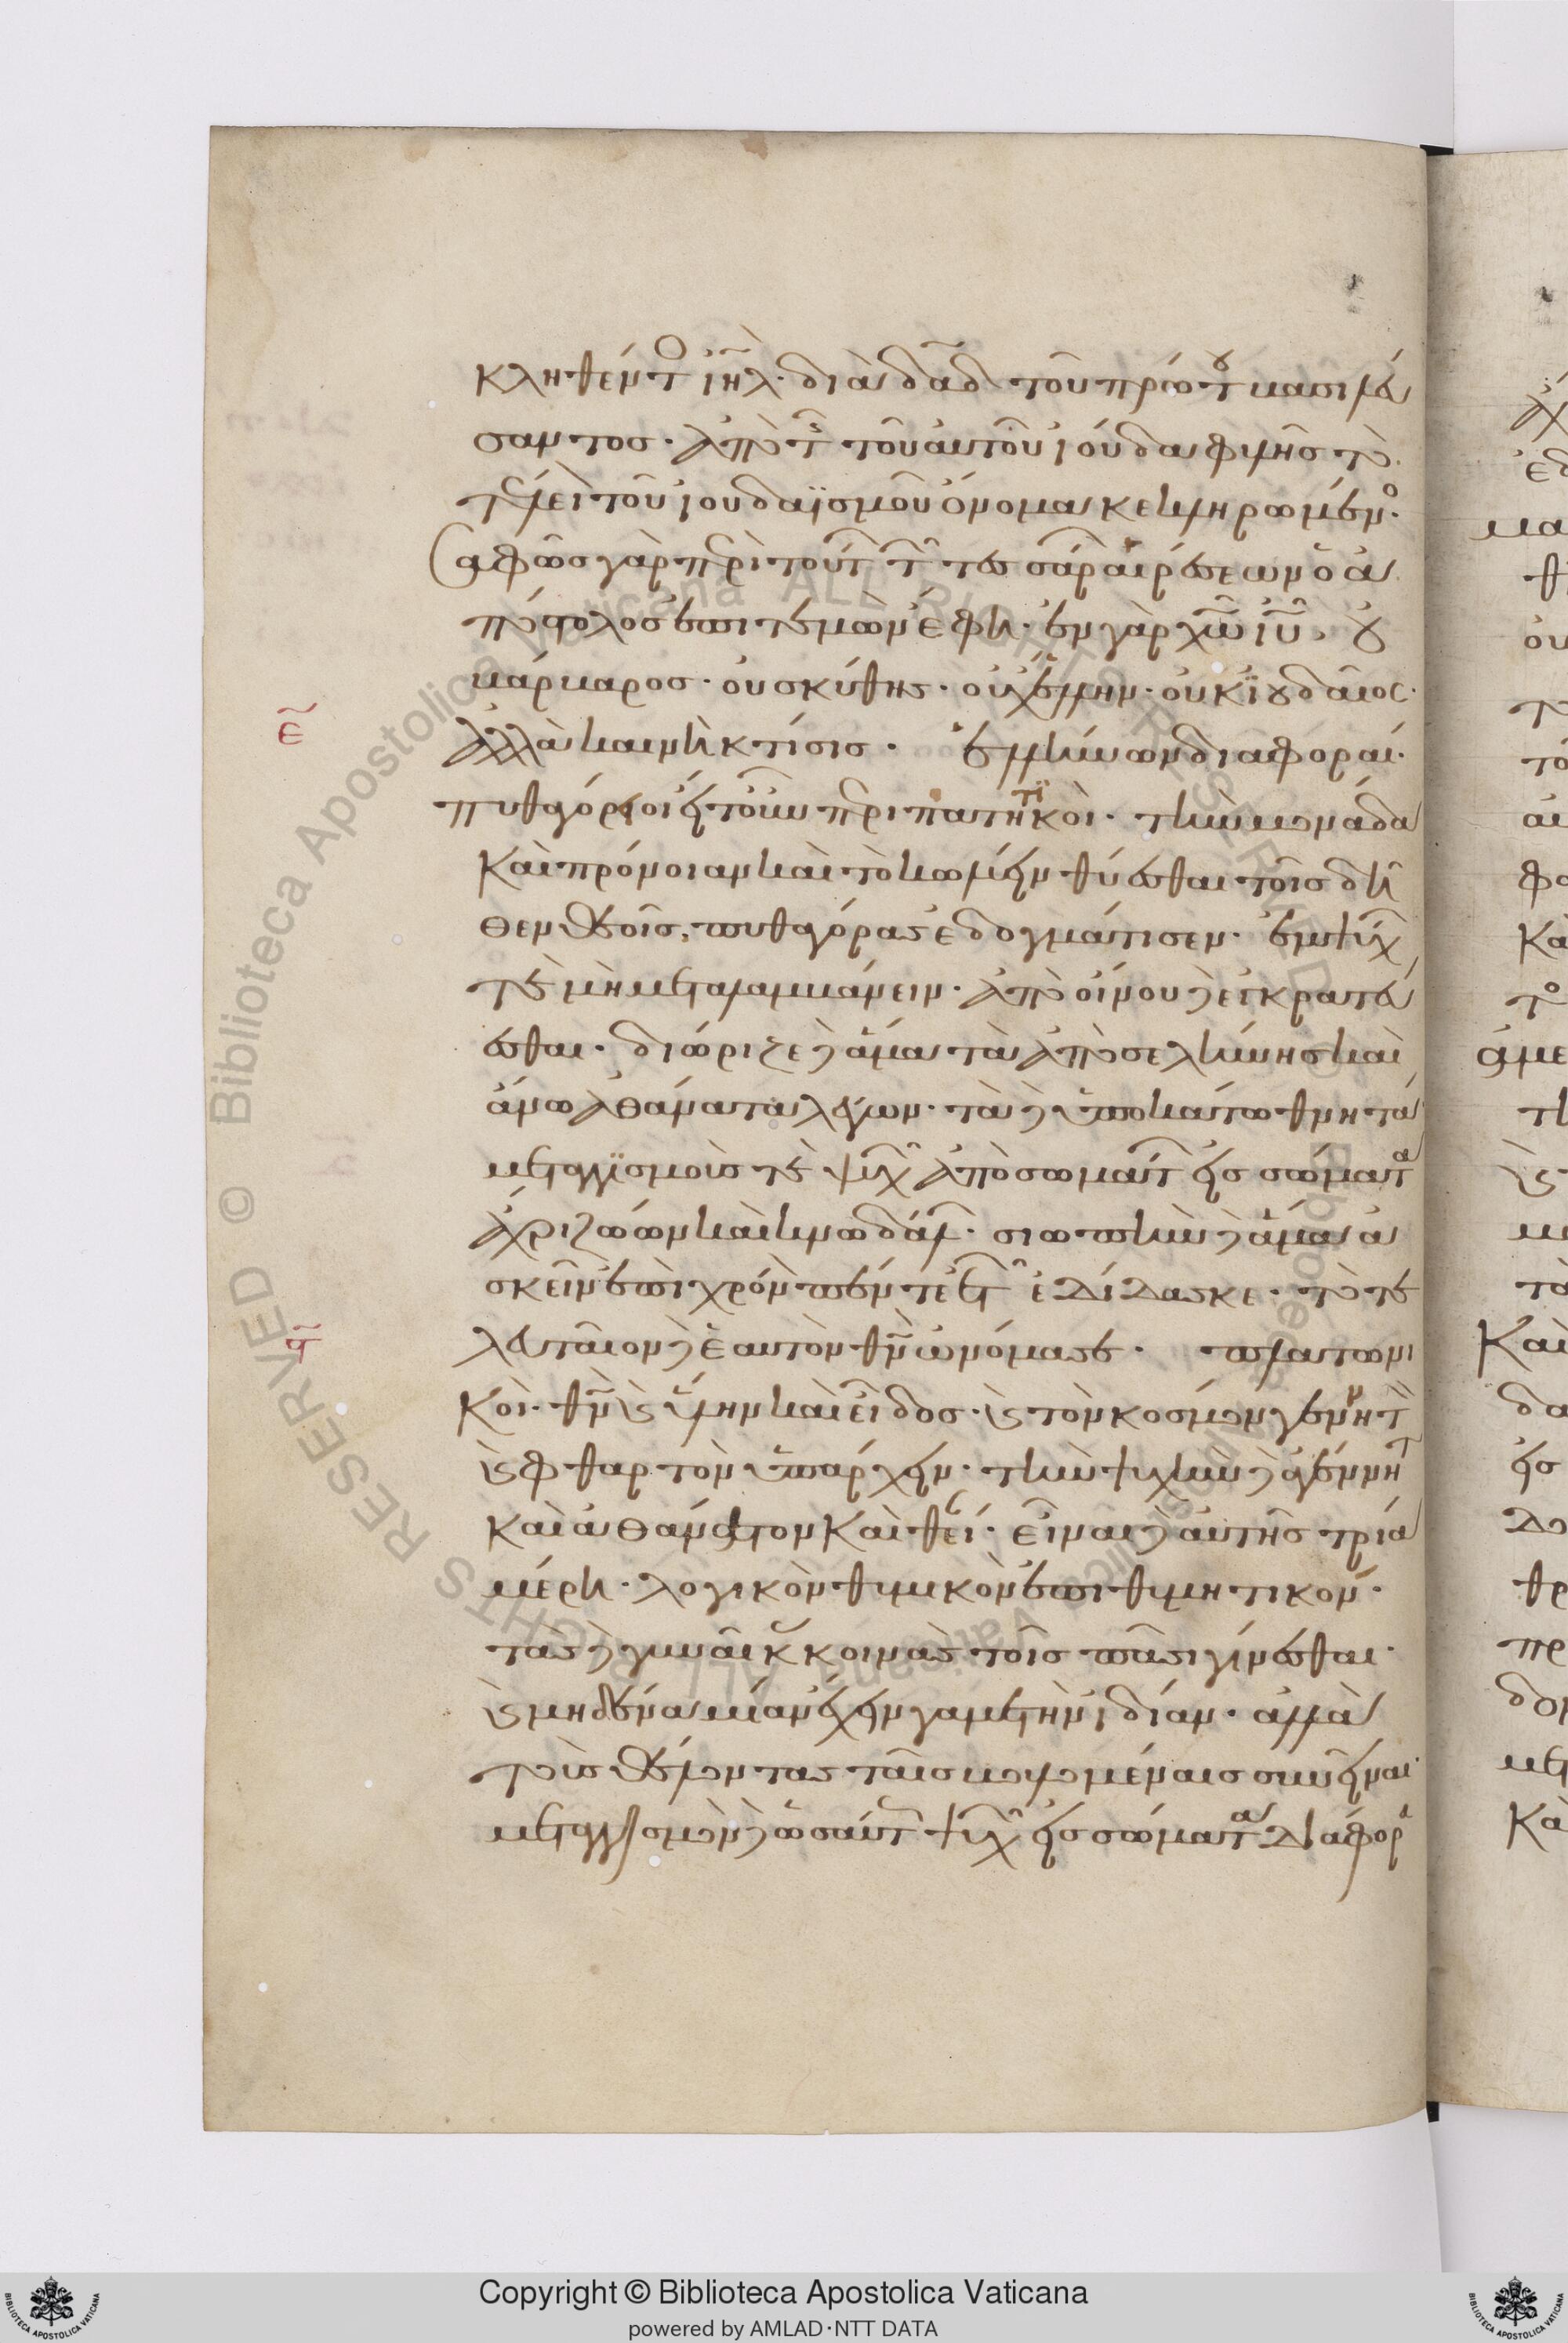 κληθέντος ιη̃λ· διὰ δα̃δ τοῦ πρώτου βασιλεύ
σαντος· ἀπὸ τῆς τοῦ αὐτοῦ ἰούδα φυλῆς τὸ
τέλει τοῦ ἰουδαϊσμοῦ ὄνομα κεκληρωμένος·
σαφῶς γὰρ περὶ τούτων τῶν τεσσάρων αἱρέσεων ὁ ἀ
πόστολος ἐπιτέμνων ἔφη· ἐν γὰρ χω̃ ιυ̃, οὐ
βάρβαρος· οὐ σκύθης· οὐχ ἕλλην· οὐκ ἰουδαῖος·
ἀλλὰ καινὴ κτίσις· ἑλλήνων διαφοραί·
ε̃
πυθαγόρειοι εἴτουν περιπατητικοὶ· τὴν μονάδα
καὶ πρόνοιαν καὶ τὸ κωλύειν θύεσθαι τοῖς δῆ
θεν θεοῖς, πυθαγόρας ἐδογμάτισεν· ἐμψύχων
τε μὴ μεταλαμβάνειν· ἀπὸ οἴνου δὲ ἐγκρατεύ
εσθαι· διώριζε δὲ ἅμα τὰ ἀπὸ σελήνης καὶ
ἄνω ἀθάνατα λέγων· τὰ δὲ ὑποκάτω θνητά
μεταγγισμούς τε ψυχῶν ἀπὸ σωμάτων εἰς σώματα
ἄχρι ζώων καὶ κνωδάλων· σιωπὴν δὲ ἅμα ἀ
σκεῖν ἐπὶ χρόνον πενταετῆ ἐδίδασκε· τὸ τε
λευταῖον δὲ ἑαυτὸν θν̃ ὠνόμασε· πλατωνι
ϛ̃
κοὶ· θν̃ καὶ ὕλην καὶ εἶδος· καὶ τὸν κόσμον γεννητὸν
καὶ φθαρτὸν ὑπάρχειν· τὴν ψυχὴν δὲ ἀγέννητον
καὶ ἀθάνατον καὶ θείαν· εἶναι δὲ αὐτῆς τρία
μέρη· λογικὸν θυμικὸν ἐπιθυμητικὸν·
τάς δὲ γυναῖκας κοινὰς τοῖς πᾶσι γίνεσθαι·
καὶ μηδένα μίαν ἔχειν γαμετὴν ἰδίαν· ἀλλὰ
τοὺς θέλοντας ταῖς βουλομέναις συνεῖναι·
μεταγγισμὸν δὲ ὡσαύτως ψυχῶν εἰς σώματα διάφορα